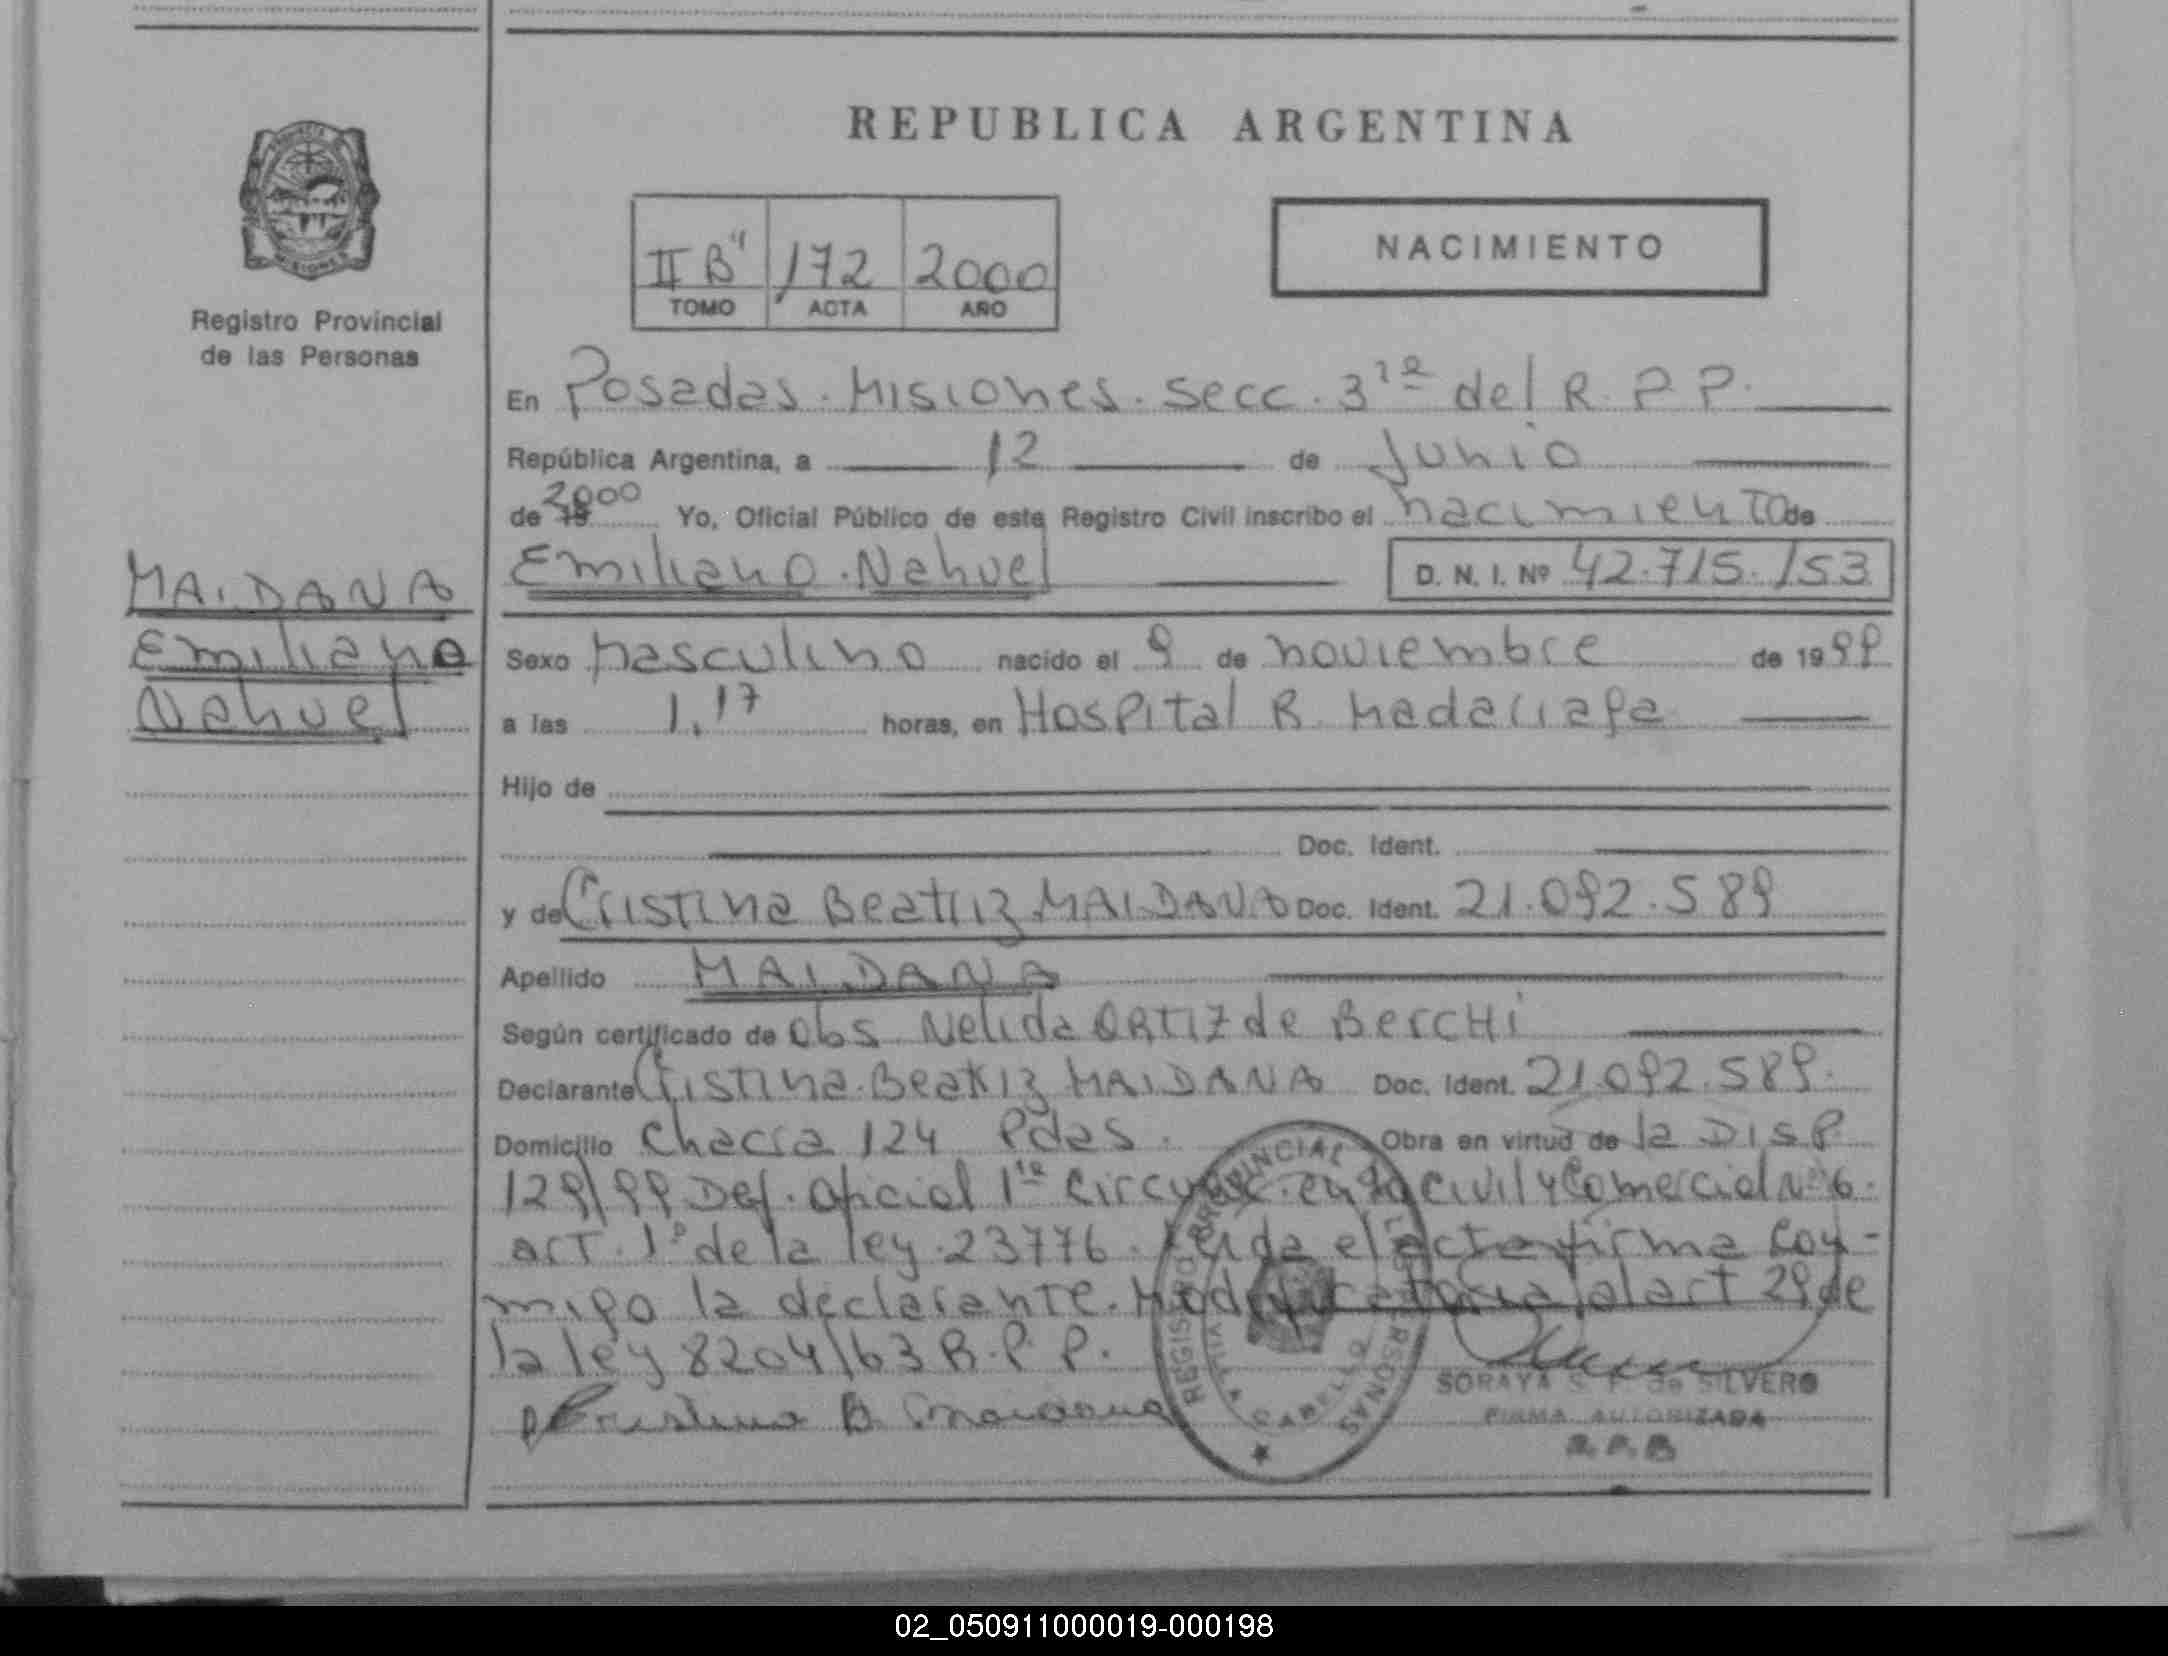 REPUBLICA ARGENTINA
II B" 172 2000
TOMO ACTA AÑO
NACIMIENTO
PROVINCIA
MISIONES
Registro Provincial
de las Personas
En Posadas. Misiones. Secc. 3ra del R.P.P.
República Argentina, a 12 de Junio
de 19 2000 Yo, Oficial Público de este Registro Civil inscribo el nacimiento de
Emiliano. Nahuel D. N. I. Nº 42.715.153
MAIDANA
Emiliano
Nahuel
Sexo Masculino nacido el 9 de noviembre de 1999
a las 1.17 horas, en Hospital R. Madariaga
Hijo de
Doc. Ident.
y de Cristina Beatriz MAIDANA Doc. Ident. 21.092.589
Apellido MAIDANA
Según certificado de Obs Nelida ORTIZ de BercHi
Declarante Cristina. Beatriz MAIDANA Doc. Ident. 21.092.589.
Domicilio Chacra 124 Pdas. Obra en virtud de la DISP.
129/99 Def. Oficial 1ra Circunsc. en lo Civil y Comercial Nº 6.
art. 1º de la ley. 23776. Leida el acta firma con-
migo la declarante. al art 29 de
la ley 8204/63 R.P.P.
Cristina B. Maidana
REGISTRO PROVINCIAL PERSONAS
VILLA CABELLO
SORAYA S. F. de SILVERO
FIRMA AUTORIZADA
R.P.P.
02_050911000019-000198